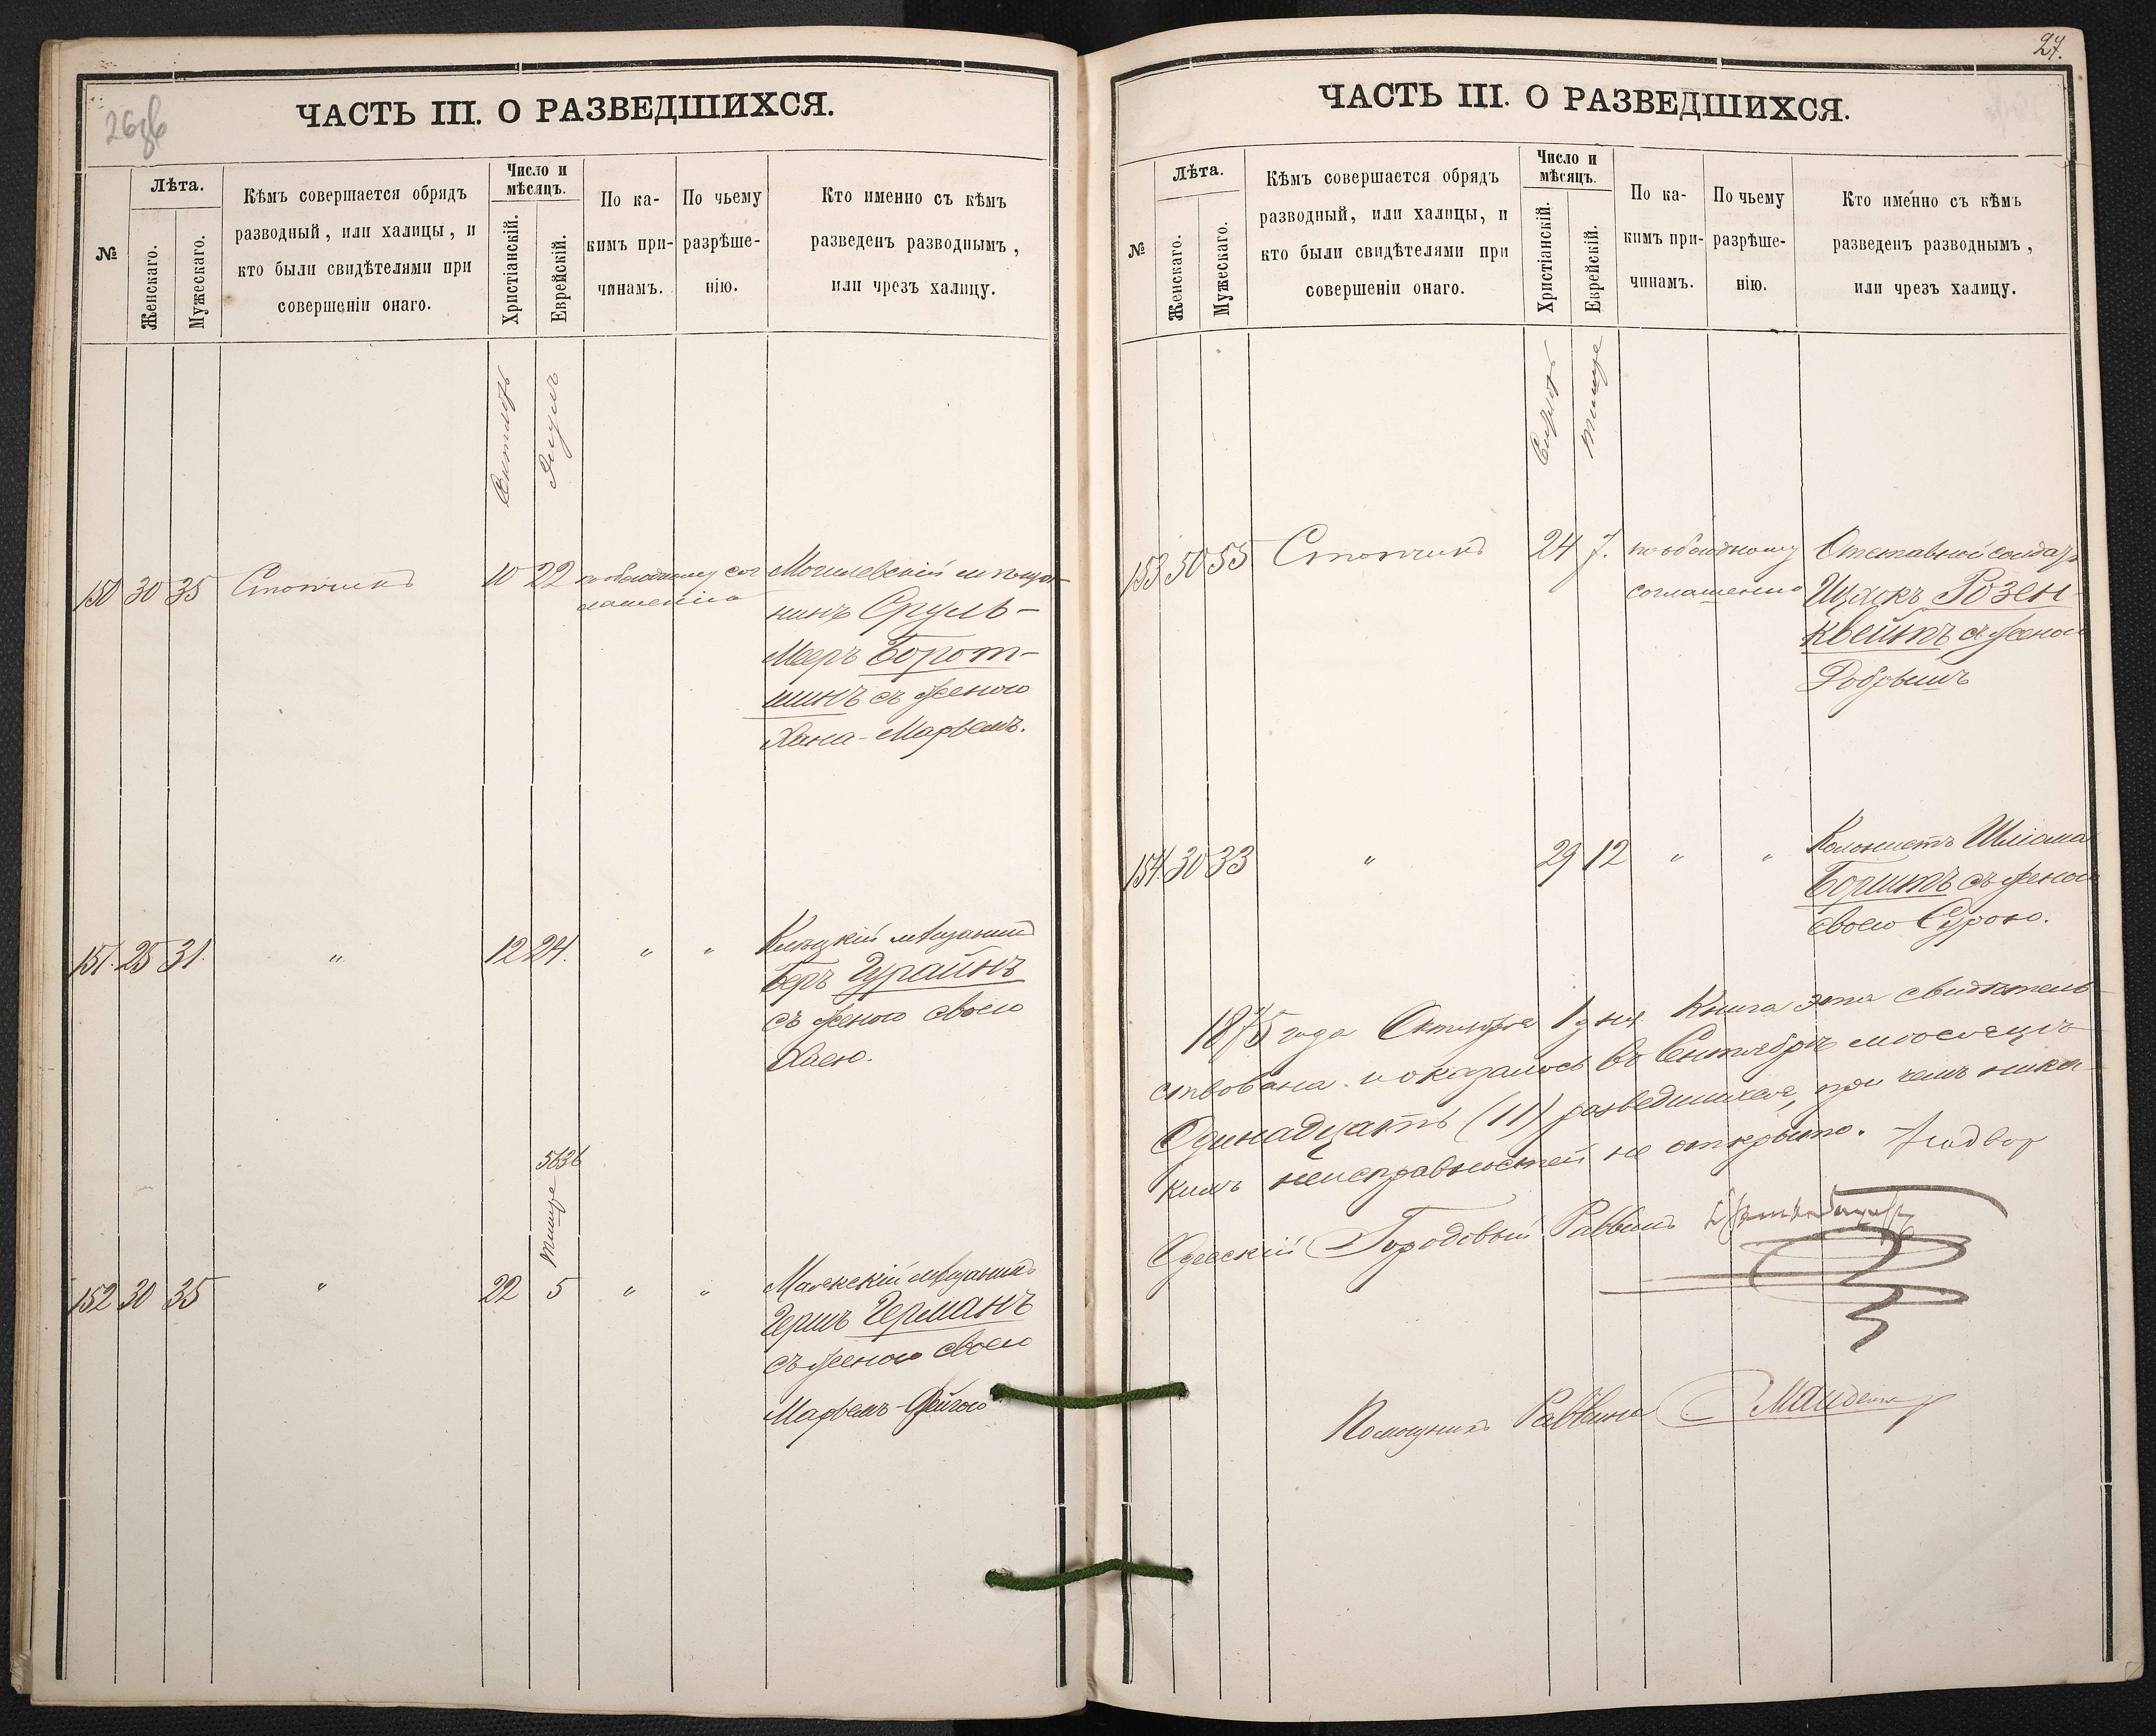 26об
ЧАСТЬ III. О РАЗВЕДШИХСЯ.
№
Лѣта.
Женскаго.
Мужескаго.
Кѣмъ совершается обрядъ
разводный, или халицы, и
кто были свидѣтелями при
совершеніи онаго.
Число и
мѣсяцъ.
Христіанскій.
Еврейскій.
По ка-
кимъ при-
чинамъ.
По чьему
разрѣше-
нію.
Кто именно съ кѣмъ
разведенъ разводнымъ,
или чрезъ халицу.
150 30 35
10 22 по обоюдному сог
лашенію
Могилевскій мѣща-
нинъ Сруль-
Мееръ Борот-
шинъ съ женою
Хана-Марьемъ.
151. 25 31. " 12 24. " "
мѣщанинъ
Беръ Гурайнъ
съ женою своею
Хаею.
5636
Тишре
152 30 35 " 22 5 " "
мѣщанинъ
Гершъ Германъ
съ женою своею
Марьемъ-Фейгою
27.
ЧАСТЬ III. О РАЗВЕДШИХСЯ.
№
Лѣта.
Женскаго.
Мужескаго.
Кѣмъ совершается обрядъ
разводный, или халицы, и
кто были свидѣтелями при
совершеніи онаго.
Число и
мѣсяцъ.
Христіанскій.
Еврейскій.
По ка-
кимъ при-
чинамъ.
По чьему
разрѣше-
нію.
Кто именно съ кѣмъ
разведенъ разводнымъ,
или чрезъ халицу.
Тишре
153 50 55
24 7. по обоюдному
соглашенію
Отставной солдатъ
Ицхокъ Розен-
квейтъ съ женою
Добрышъ
154. 30 33 " 29 12 " "
Колонистъ Шліома
Борштъ съ женою
своею Сурою.
1875 года Октября 1 дня Книга эта свидѣтель-
ствована и оказалось въ Сентябрѣ мѣсяцѣ
Одинадцать (11) разведшихся, при чемъ ника-
кихъ неисправностей не открыто.
Одесскій Городовый Раввинъ
Помощникъ Раввина